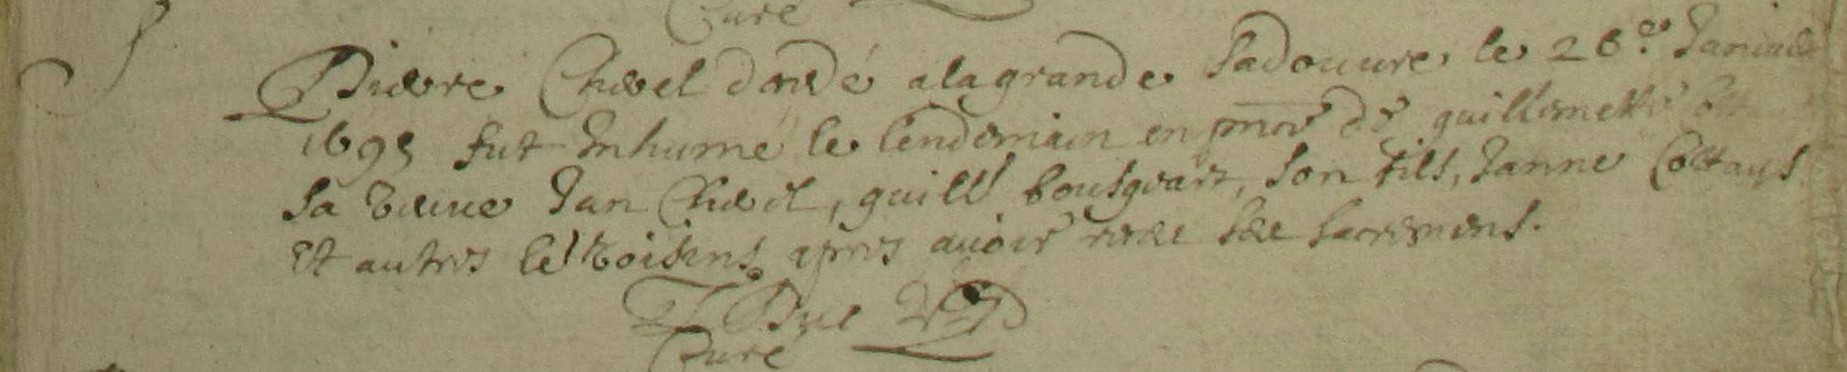 Curé
Pierre Chevel décédé a la grande Sadouure le 26e Januier
1695 fut Inhumé le lendemain en pnce de guillemette
Sa veuue Jan Chevel, guill bousgvart, son fils, Janne Cottays
Et autres ses voisins apres auoir recu ses sacremens.
Curé